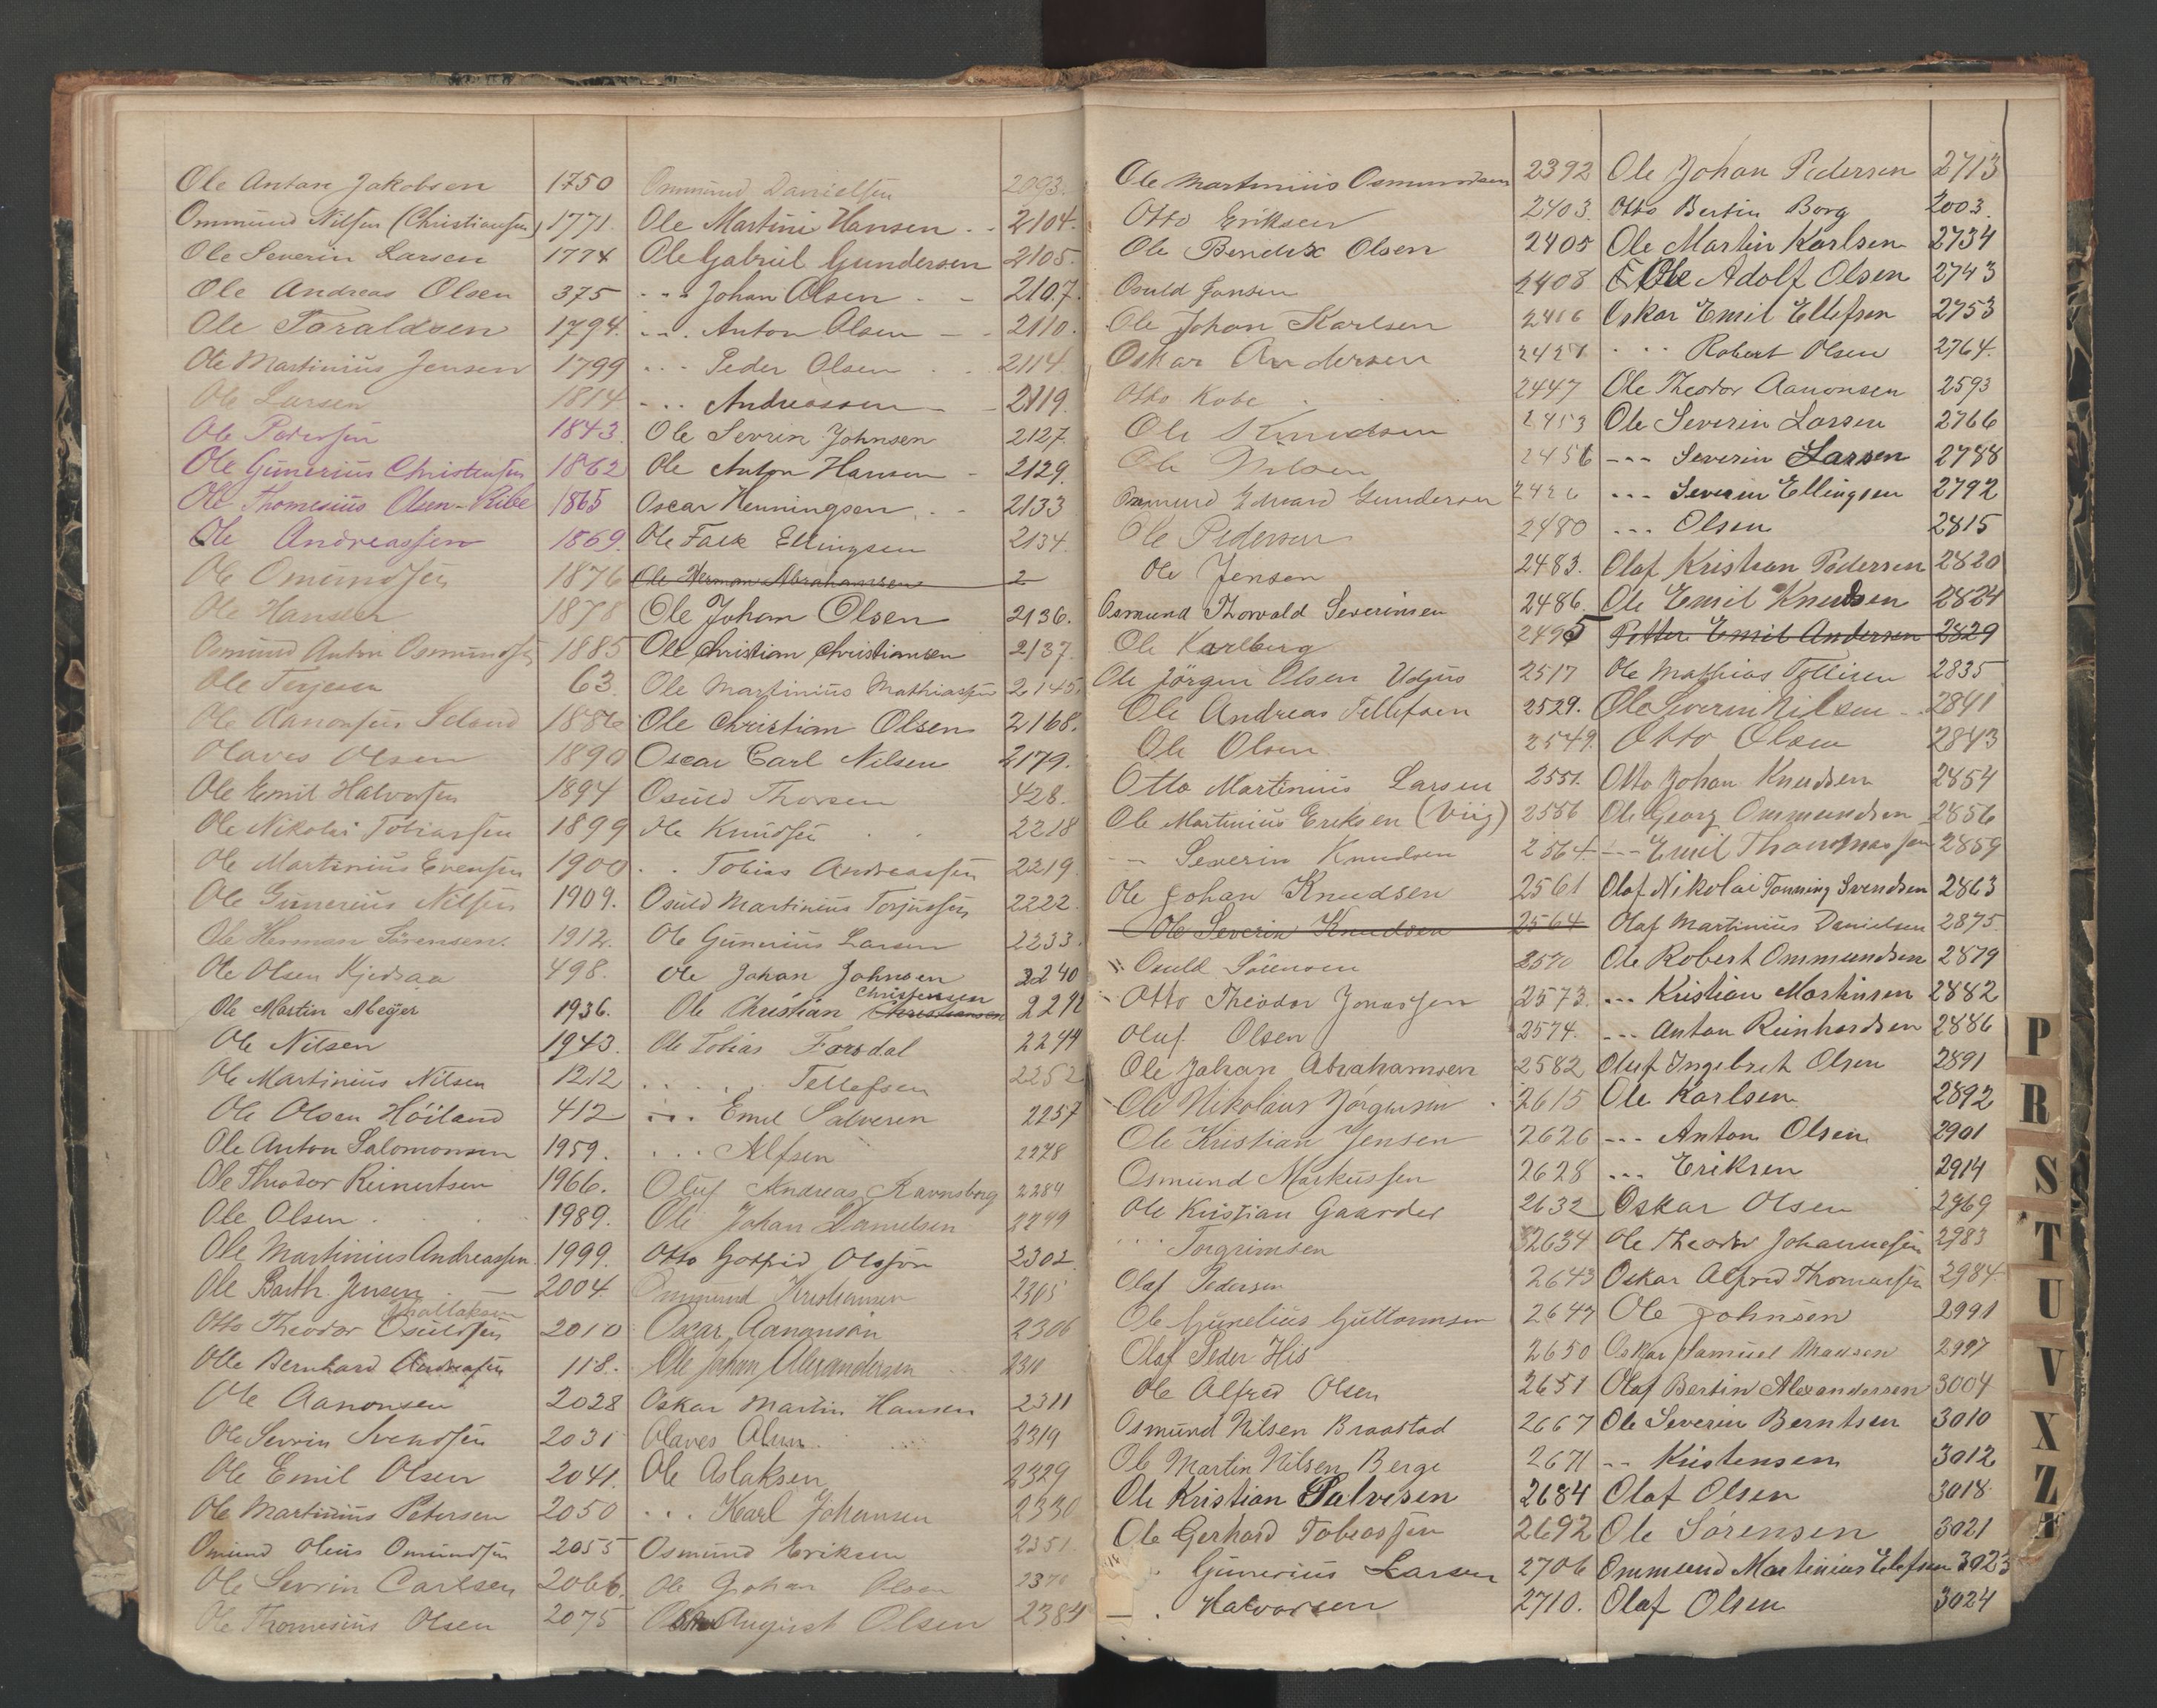 Ole Antare Jakobsen 1750
Ommund Nilsen (Christiansen) 1771.
Ole Severin Larsen 1774
Ole Andreas Olsen 375
Ole Taraldsen 1794.
Ole Martinius Jensen 1799
Ole Larsen 1814
Ole Pedersen 1843.
Ole Gunerius Christensen 1862
Ole Thomesius Olsen-Ribe 1865
Ole Andreassen 1869.
Ole Omundsen 1876
Ole Hansen 1878
Osmund Anton Osmundsen 1885
Ole Terjesen 63.
Ole Aanonsen 1886
Olaves Olsen 1890
Ole Emil Halvorsen 1894
Ole Nikolai Tobiassen 1899
Ole Martinius Evensen 1900
Ole Gunerius Nilsen 1909.
Ole Herman Sørensen. 1912.
Ole Olsen Kjedsaa 498.
Ole Martin Meyer 1936.
Ole Nilsen 1943.
Ole Martinius Nilsen 1212
Ole Olsen Höiland 412
Ole Anton Salomonsen 1959.
Ole Theodor Reinertsen 1966.
Ole Olsen 1989.
Ole Martinius Andreassen 1999.
Ole Barth. Jensen 2004.
Otto Theodor Osuldsen 2010
Olle Bernhard Andreasen 118.
Ole Aanonsen 2028
Ole Sevrin Svendsen 2031
Ole Emil Olsen 2041.
Ole Martinius Petersen 2050
Omund Oleus Omundsen 2055
Ole Sevrin Carlsen 2066.
Ole Thomesius Olsen 2075
Ommund Danielsen 2093.
Ole Martini Hansen 2104.
Ole Gabriel Gundersen 2105.
" Johan Olsen 2107.
" Anton Olsen 2110.
" Peder Olsen 2114.
" Andreassen 2119.
Ole Sevrin Johnsen 2127.
Ole Anton Hansen 2129.
Oscar Henningsen 2133
Ole Falk Ellingsen 2134.
Ole Herman Abrahamsen 2
Ole Johan Olsen 2136.
Ole Christian Christiansen 2137.
Ole Martinius Mathiassen 2145.
Ole Christian Olsen 2168.
Oscar Carl Nilsen 2179.
Osuld Thorsen 428.
Ole Knudsen 2218
" Tobias Andreassen 2219
Osuld Martinius Torjussen 2222.
Ole Gunerius Larsen 2233.
Ole Johan Johnsen 2240
Christensen
Ole Christian Christiansen 2242
Ole Tobias Forsdal 2244
" Tellefsen 2252
" Emil Salvesen 2257
" Alfsen 2278
Oluf Andreas Ravnsborg 2284
Ole Johan Danielsen 2299
Otto Gotfrid Olsson 2302.
Ommund Kristiansen 2305
Oscar Aanonsen 2306
Ole Johan Alexandersen 2311
Oskar Martin Hansen 2311
Olaves Olsen 2319
Ole Aslaksen 2329
" Karl Johansen 2330
Osmund Eriksen 2351.
Ole Johan Olsen 2370
August Olsen 2384
Ole Martinius Osmundsen 2392
Otto Eriksen 2403.
Ole Bendix Olsen 2405
Osuld Jansen 2408
Ole Johan Karlsen 2416
Oskar Andersen 2421
Otto Kobe 2447
Ole Knudsen 2453
Ole Nilsen 2456
Ommund Edvard Gundersen
Ole Pedersen 2480
Ole Jensen 2483.
Osmund Thorvald Severinsen 2486.
Ole Karlberg 2495
Ole Jörgen Olsen 2517
Ole Andreas Tellefsen 2529.
Ole Olsen 2549.
Otto Martinius Larsen 2551.
Ole Martinius Eriksen (Viig) 2556
" Severin Knudsen 2564.
Ole Johan Knudsen 2561
Ole Severin Knudsen 2564
Osuld Sörensen 2570
Otto Theodor Jonassen 2573.
Oluf Olsen 2574.
Ole Johan Abrahamsen 2582
Ole Nikolaus Jörgensen 2615
Ole Kristian Jensen 2626
Osmund Markussen 2628
Ole Kristian Gaarder 2632
" Torgrimsen 2634
Olaf Pedersen 2643
Ole Gunelius Guttormsen 2647
Olaf Peder His 2650
Ole Alfred Olsen 2651
Osmund Nilsen Braastad 2667
Ole Martin Nilsen Berge 2671
Ole Kristian Salvesen 2684
Ole Gerhard Tobiassen 2692
" Gunerius Larsen 2706
" Halvorsen 2710.
Ole Johan Pedersen 2713
Otto Bertin Borg 2003.
Ole Martin Karlsen 2734
Ole Adolf Olsen 2743
Oskar Emil Ellefsen 2753
" Robert Olsen 2764.
Ole Theodor Aanonsen 2593
Ole Severin Larsen 2766
" Severin Larsen 2788
" Severin Ellingsen 2792
" Olsen 2815
Olaf Kristian Pedersen 2820
Ole Emil Knudsen 2824
Petter Emil Andersen 2829
Ole Mathias Tollisen 2835
Ole Severin Nilsen 2841
Otto Olsen 2843
Otto Johan Knudsen 2854
Ole Georg Ommundsen 2856
" Emil Thommassen 2859
Olaf Nikolai Tonning Svendsen 2863
Olaf Martinius Danielsen 2875
Ole Robert Ommundsen 2879
" Kristian Martinsen 2882
" Anton Reinhardsen 2886
Oluf Ingebret Olsen 2891
Ole Karlsen 2892
" Anton Olsen 2901
" Eriksen 2914
Oskar Olsen 2969
Ole Theodor Johannesen 2983
Oskar Alfred Thomassen 2984
Ole Johnsen 2991
Oskar Samuel Madsen 2997
Olaf Bertin Alexandersen 3004
Ole Severin Berntsen 3010
" Kristensen 3012
Olaf Olsen 3018
Ole Sørensen 3021
Ommund Martinius Elefsen 3023
Olaf Olsen 3024
P
R
S
T
U
V
X
Z